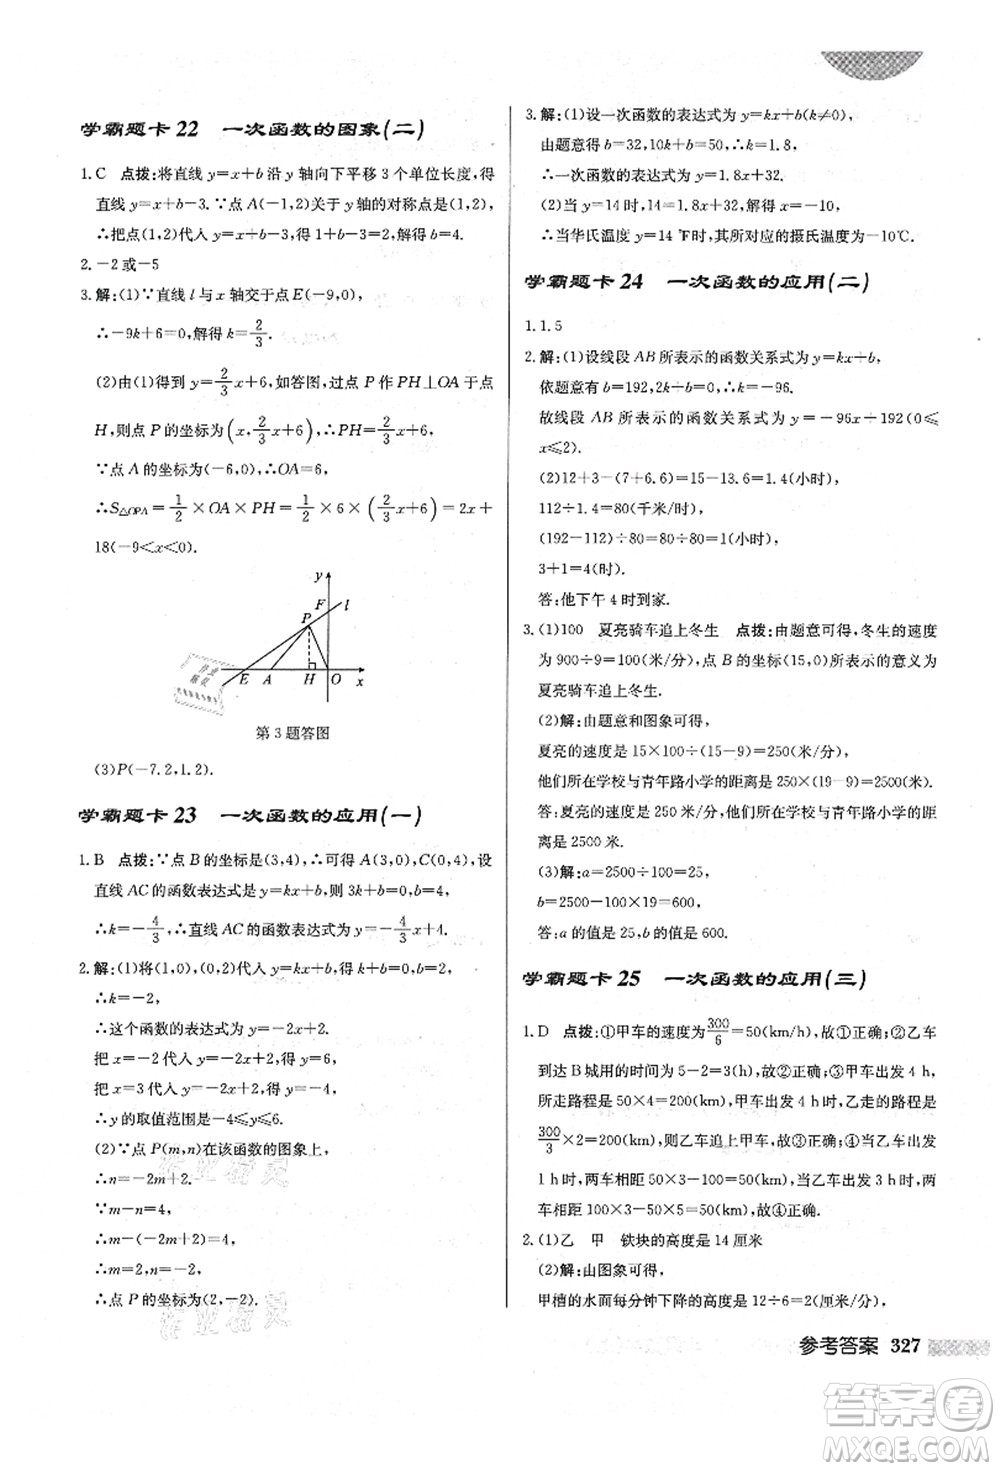 学霸题卡 22　一次函数的图象(二)
1.C　点拨:将直线 y=x+b 沿 y 轴向下平移 3 个单位长度,得
直线 y=x+b-3.∵点 A(-1,2)关于 y 轴的对称点是(1,2),
∴把点(1,2)代入 y=x+b-3,得 1+b-3=2,解得 b=4.
2.-2 或-5
3.解:(1)∵直线 l 与 x 轴交于点 E(-9,0),
∴-9k+6=0,解得 k=2/3.
(2)由(1)得到 y=2/3x+6,如答图,过点 P 作 PH⊥OA 于点
H,则点 P 的坐标为(x,2/3x+6),∴PH=2/3x+6,
∵点 A 的坐标为(-6,0),∴OA=6,
∴S△OPA=1/2×OA×PH=1/2×6×(2/3x+6)=2x+
18(-9<x<0).
y
F
l
P
E A H O x
第 3 题答图
(3)P(-7.2,1.2).
学霸题卡 23　一次函数的应用(一)
1.B　点拨:∵点 B 的坐标是(3,4),∴可得 A(3,0),C(0,4),设
直线 AC 的函数表达式是 y=kx+b,则 3k+b=0,b=4,
∴k=-4/3,∴直线 AC 的函数表达式为 y=-4/3x+4.
2.解:(1)将(1,0),(0,2)代入 y=kx+b,得 k+b=0,b=2,
∴k=-2,
∴这个函数的表达式为 y=-2x+2.
把 x=-2 代入 y=-2x+2,得 y=6,
把 x=3 代入 y=-2x+2,得 y=-4,
∴y 的取值范围是-4≤y<6.
(2)∵点 P(m,n)在该函数的图象上,
∴n=-2m+2.
∵m-n=4,
∴m-(-2m+2)=4,
∴m=2,n=-2,
∴点 P 的坐标为(2,-2).
3.解:(1)设一次函数的表达式为 y=kx+b(k≠0),
由题意得 b=32,10k+b=50,∴k=1.8,
∴一次函数的表达式为 y=1.8x+32.
(2)当 y=14 时,14=1.8x+32,解得 x=-10,
∴当华氏温度 y=14 ℉时,其所对应的摄氏温度为-10℃.
学霸题卡 24　一次函数的应用(二)
1.1.5
2.解:(1)设线段 AB 所表示的函数关系式为 y=kx+b,
依题意有 b=192,2k+b=0,∴k=-96.
故线段 AB 所表示的函数关系式为 y=-96x+192(0≤
x≤2).
(2)12+3-(7+6.6)=15-13.6=1.4(小时),
112÷1.4=80(千米/时),
(192-112)÷80=80÷80=1(小时),
3+1=4(时).
答:他下午 4 时到家.
3.(1)100　夏亮骑车追上冬生　点拨:由题意可得,冬生的速度
为 900÷9=100(米/分),点 B 的坐标(15,0)所表示的意义为
夏亮骑车追上冬生.
(2)解:由题意和图象可得,
夏亮的速度为 15×100÷(15-9)=250(米/分),
他们所在学校与青年路小学的距离是 250×(19-9)=2500(米).
答:夏亮的速度为 250 米/分,他们所在学校与青年路小学的距
离是 2500 米.
(3)解:a=2500÷100=25,
b=2500-100×19=600,
答:a 的值是 25,b 的值是 600.
学霸题卡 25　一次函数的应用(三)
1.D　点拨:①甲车的速度为300/6=50(km/h),故①正确;②乙车
到达 B 城用的时间为 5-2=3(h),故②正确;③甲车出发 4 h,
所走路程是 50×4=200(km),甲车出发 4 h 时,乙走的路程是
300/3×2=200(km),则乙车追上甲车,故③正确;④当乙车出发
1 h 时,两车相距 50×3-100=50(km),当乙车出发 3 h 时,两
车相距 100×3-50×5=50(km),故④正确.
2.(1)乙　甲　铁块的高度是 14 厘米
(2)解:由图象可得,
甲槽的水面每分钟下降的高度是 12÷6=2(厘米/分),
参考答案 327
答案圈
MXQE.COM